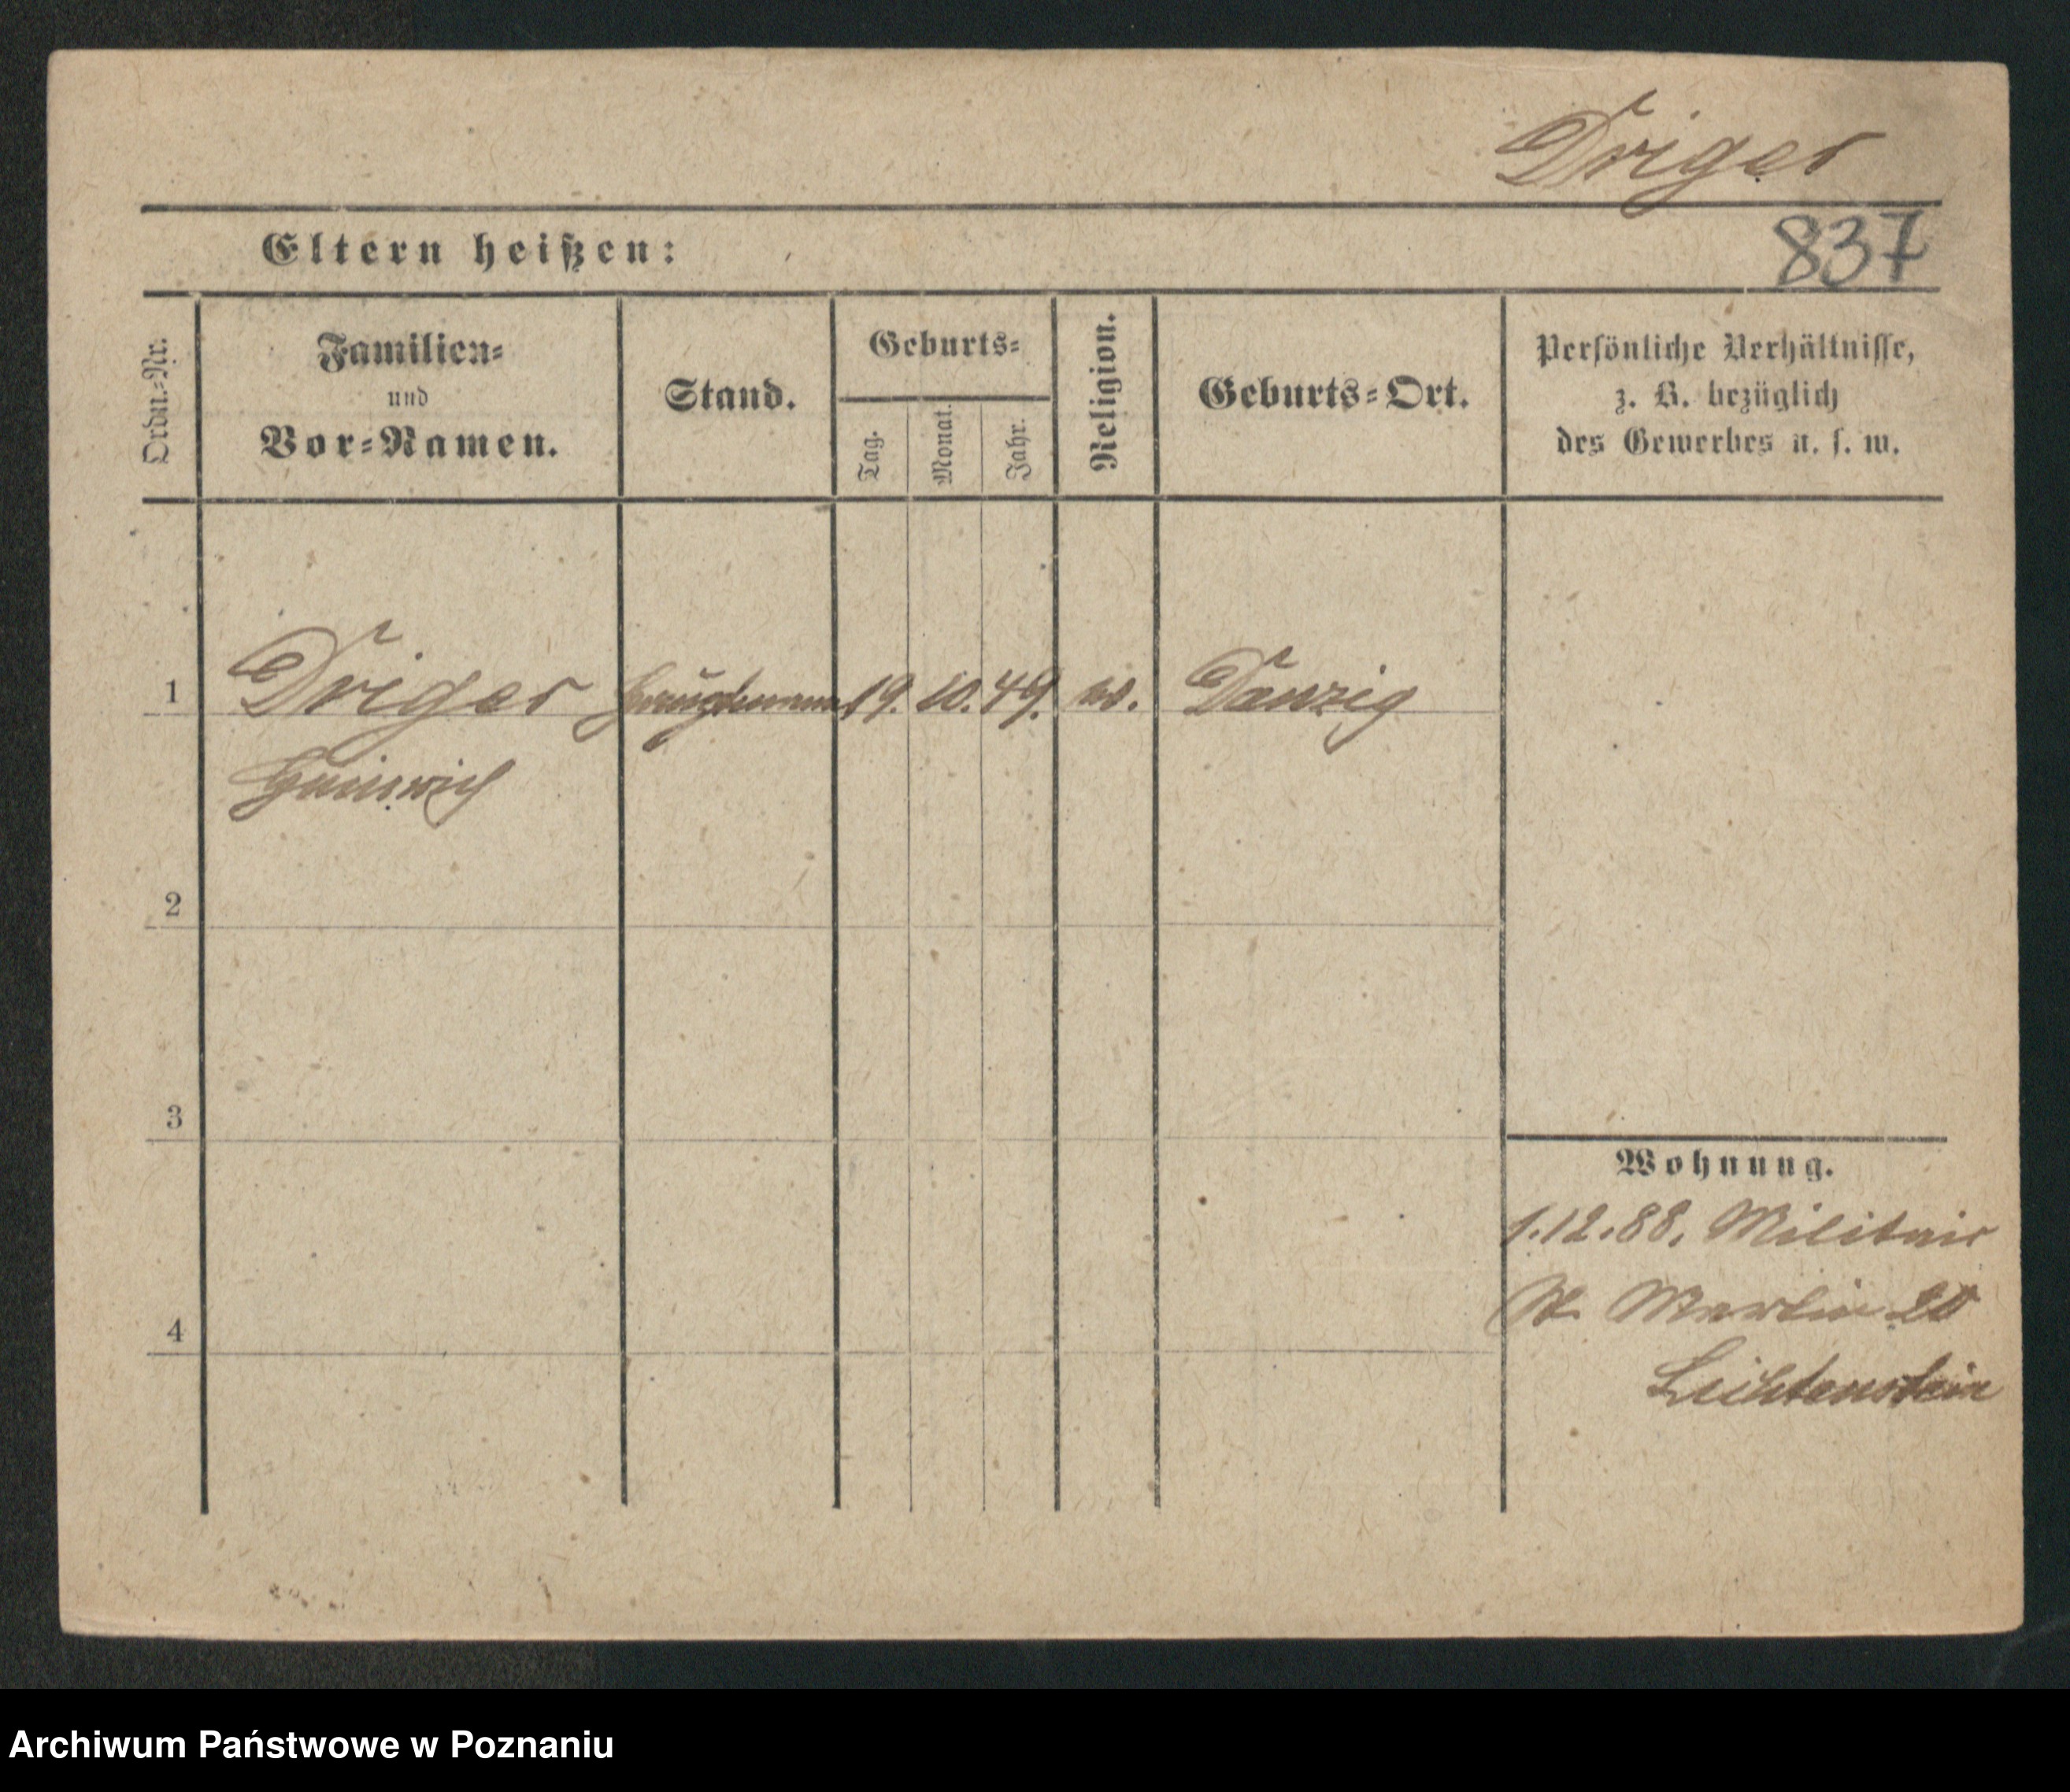 Driger
Eltern heißen:
837
Ordn.-Nr.
Familien-
und
Vor-Namen.
Stand.
Geburts-
Tag.
Monat.
Jahr.
Religion.
Geburts-Ort.
Persönliche Verhältnisse,
z. B. bezüglich
des Gewerbes u. s. w.
1 Driger Hauptmann 19. 10. 49. Danzig
Heinrich
2
3
4
Wohnung.
1.12.88. Militair
St. Martin 20
Lichtenstein
Archiwum Państwowe w Poznaniu